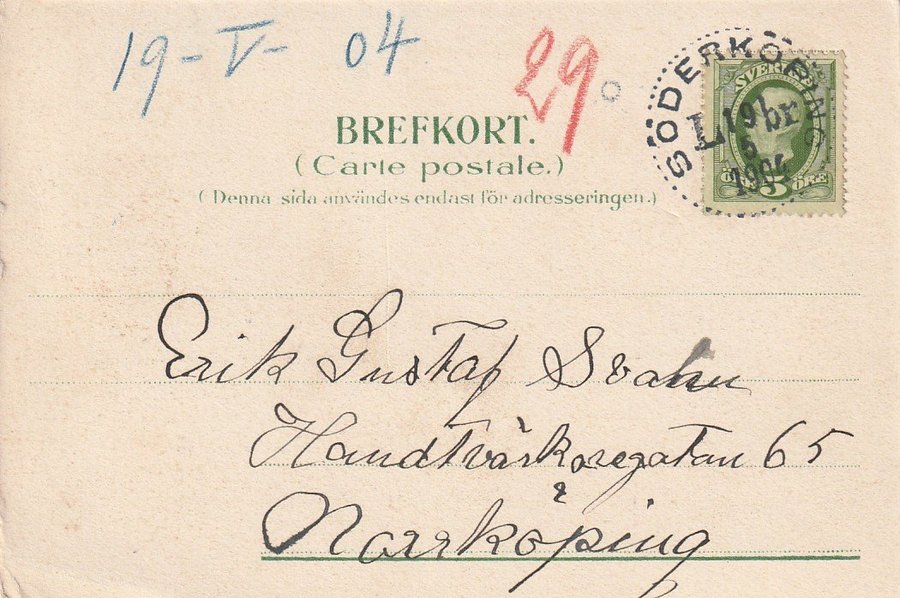 19-V-04
29
BREFKORT.
(Carte postale.)
(Denna sida användes endast för adresseringen.)
SÖDERKÖPING
SVERIGE
L 19 br
5
1904
5 ÖRE
Erik Gustaf Svahn
Handtvärkaregatan 65
Norrköping